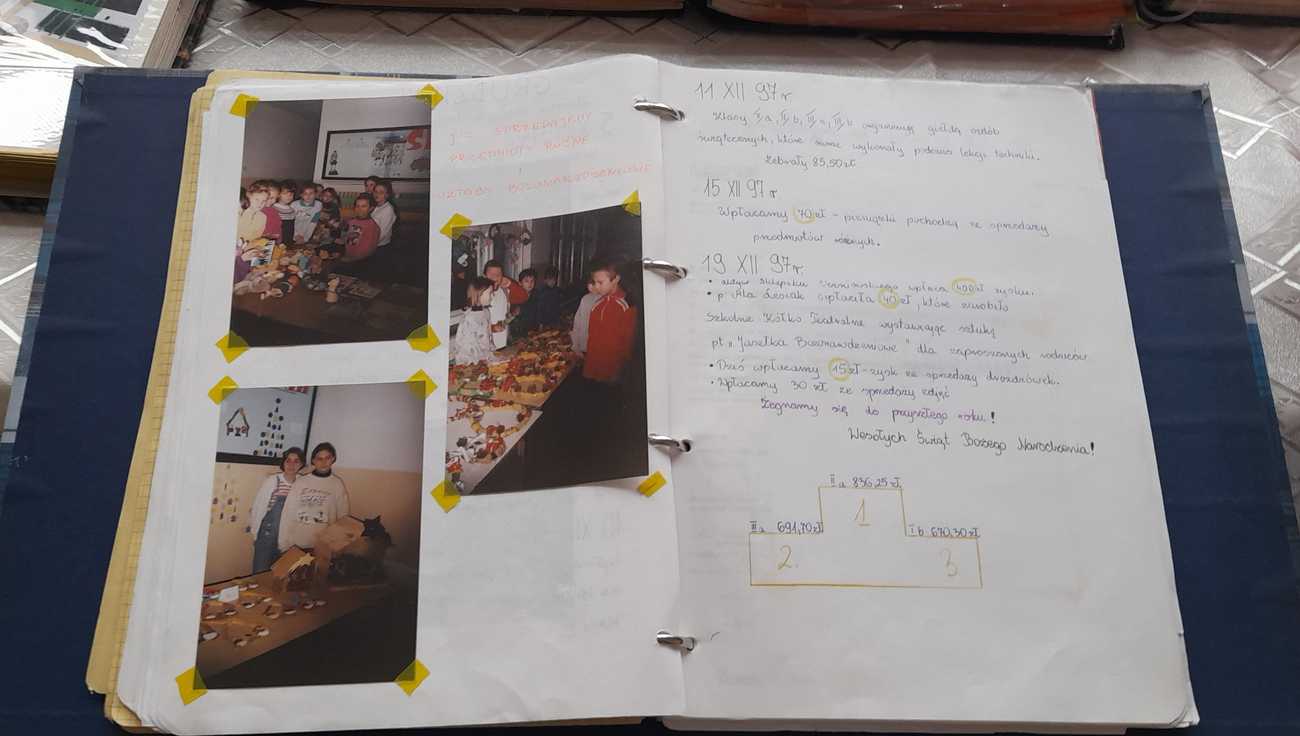 I SPRZEDAJEMY
PRZEDMIOTY RÓŻNE
OZDOBY BOŻONARODZENIOWE
11 XII 97 r.
Klasy II b, III a, III b organizują giełdę ozdób
świątecznych, które same wykonały podczas lekcji techniki.
Zebrały 85,50 zł
15 XII 97 r
Wpłacamy 70 zł - pieniążki pochodzą ze sprzedaży
przedmiotów różnych.
19 XII 97 r.
• sklepiku uczniowskiego wpłaca 400 zł zysku.
• p. Ala Lesiak wpłaciła 40 zł, które zarobiło
Szkolne Kółko Teatralne wystawiając sztukę
pt „Jasełka Bożonarodzeniowe" dla zaproszonych rodziców.
• Dziś wpłacamy 15 zł - zysk ze sprzedaży drożdżówek.
• Wpłacamy 30 zł ze sprzedaży zdjęć
Żegnamy się do przyszłego roku!
Wesołych Świąt Bożego Narodzenia!
II a 836,25 zł
1
III a 691,70 zł
I b 670,30 zł
2.
3